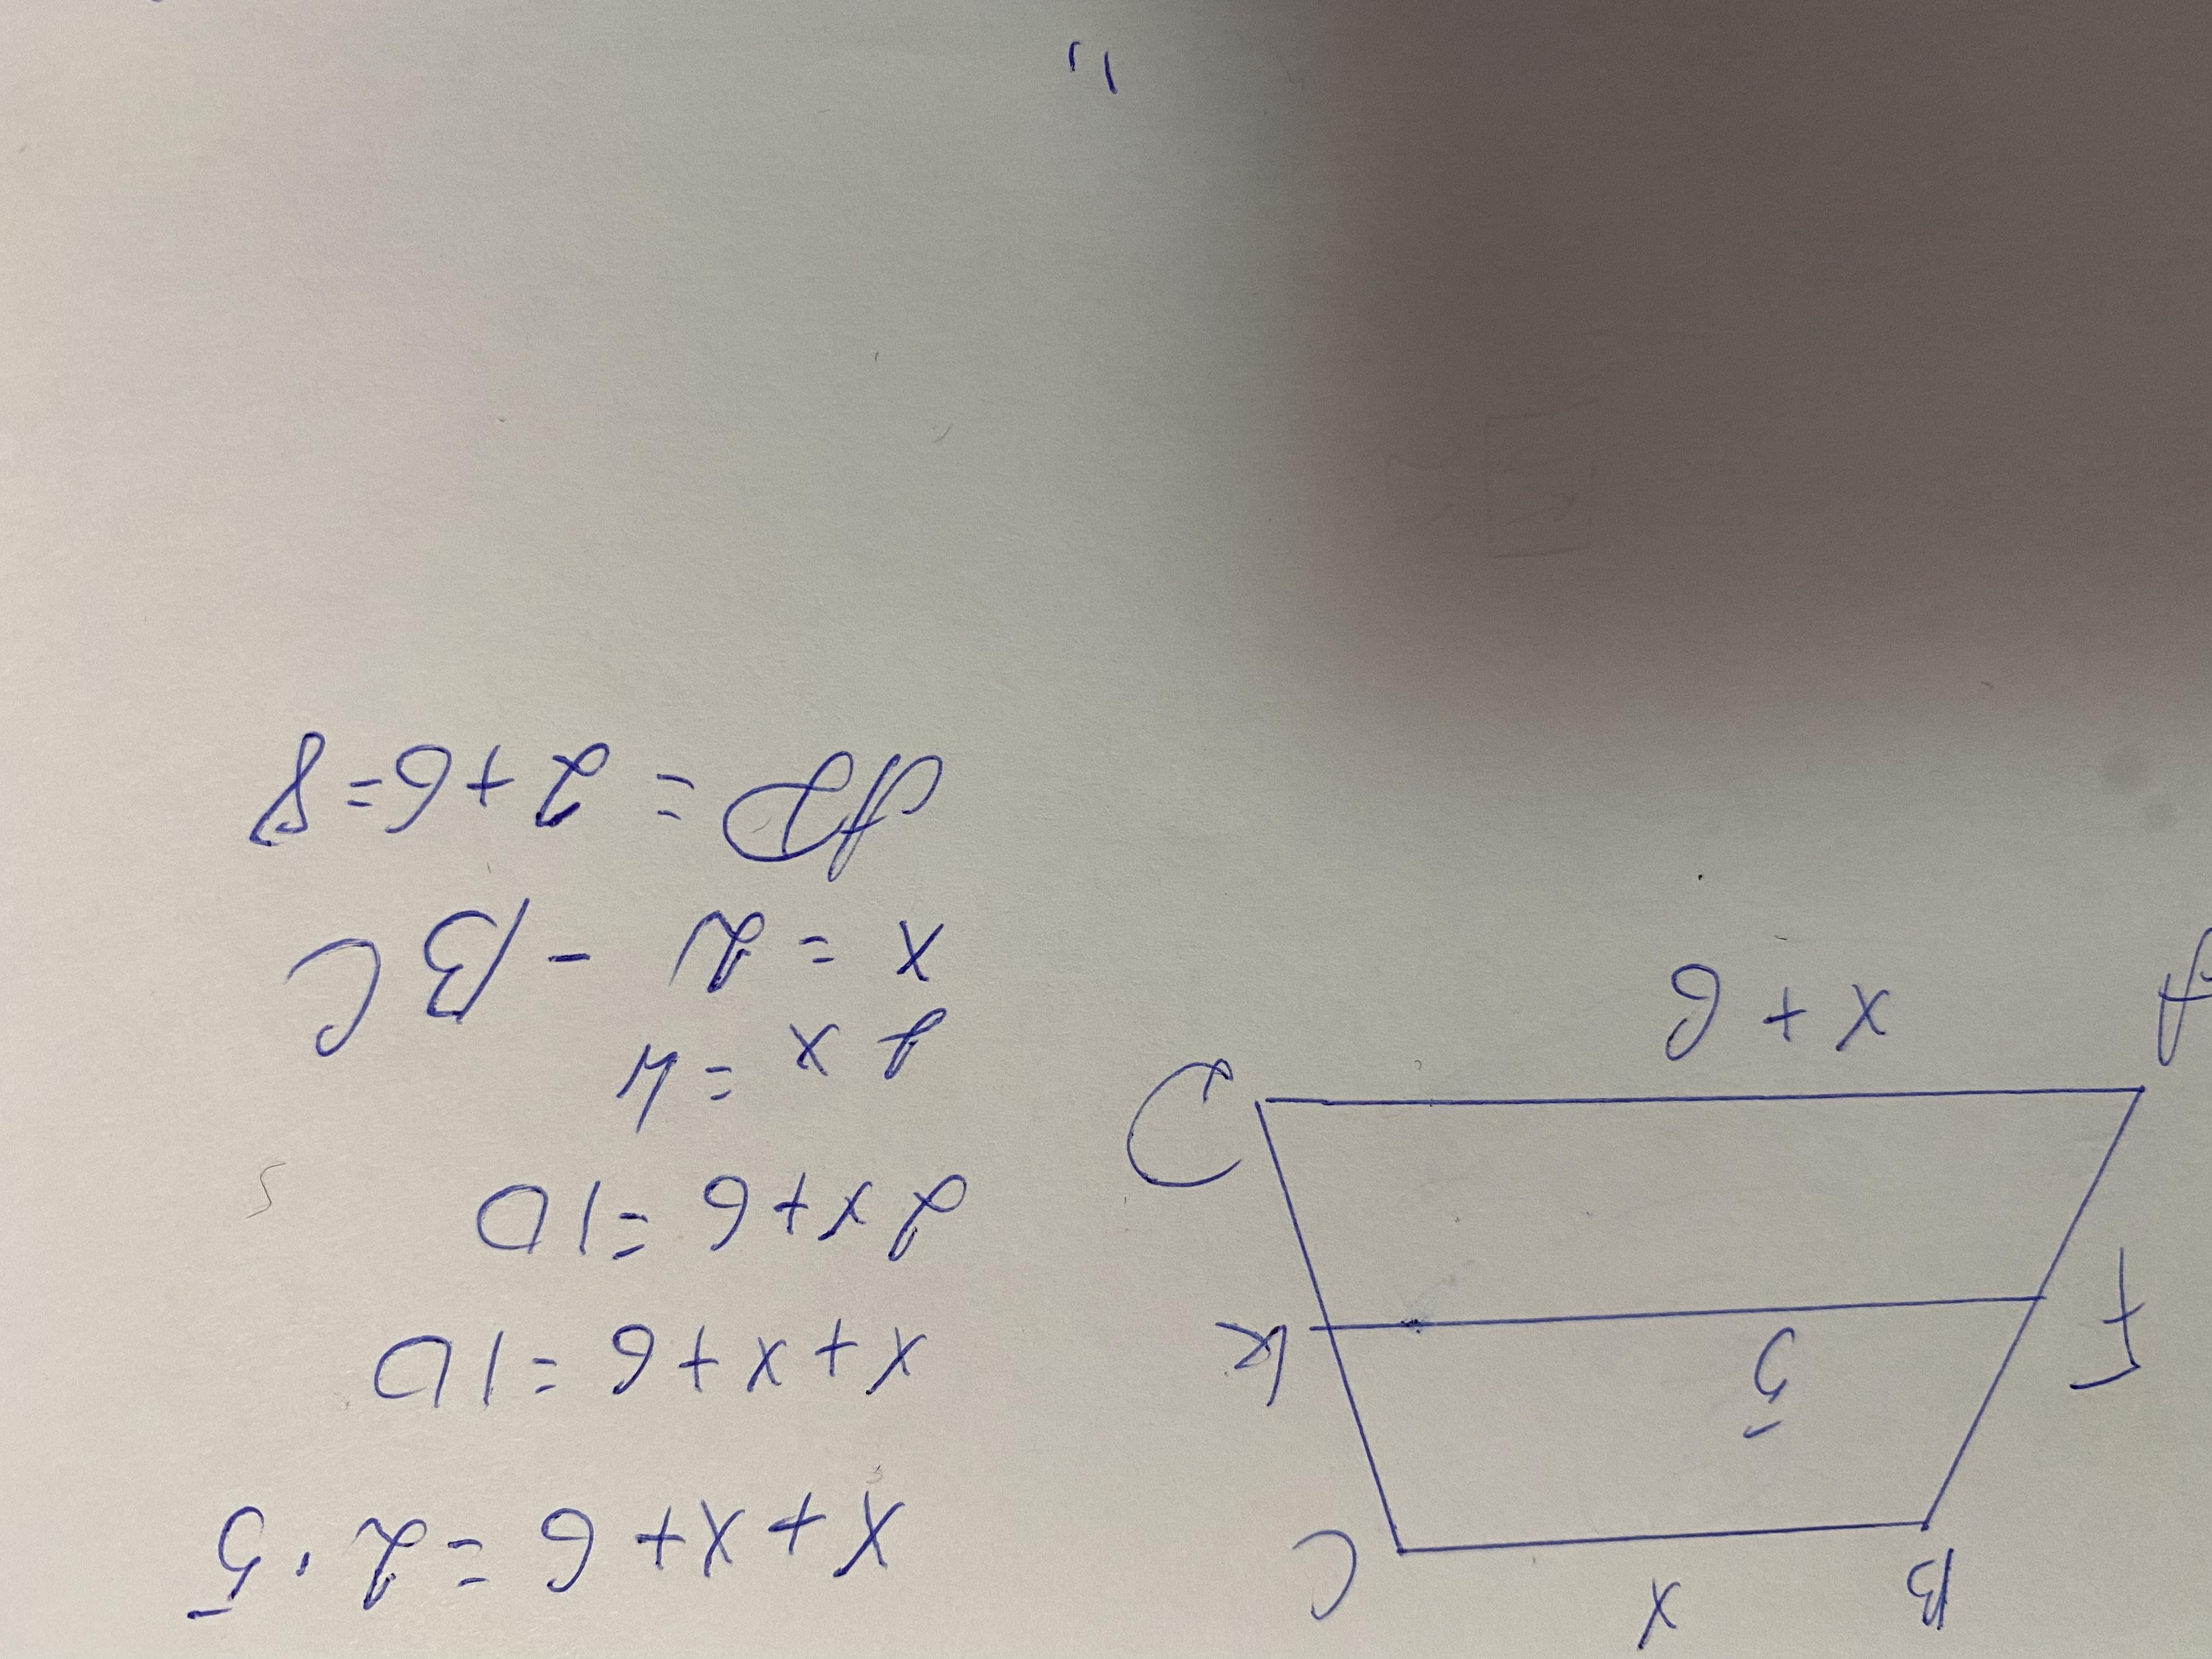 B x C
x+x+6=2·5
F 5 K
x+x+6=10
2x+6=10
A D
x+6
2x=4
x=2 - BC
AD=2+6=8